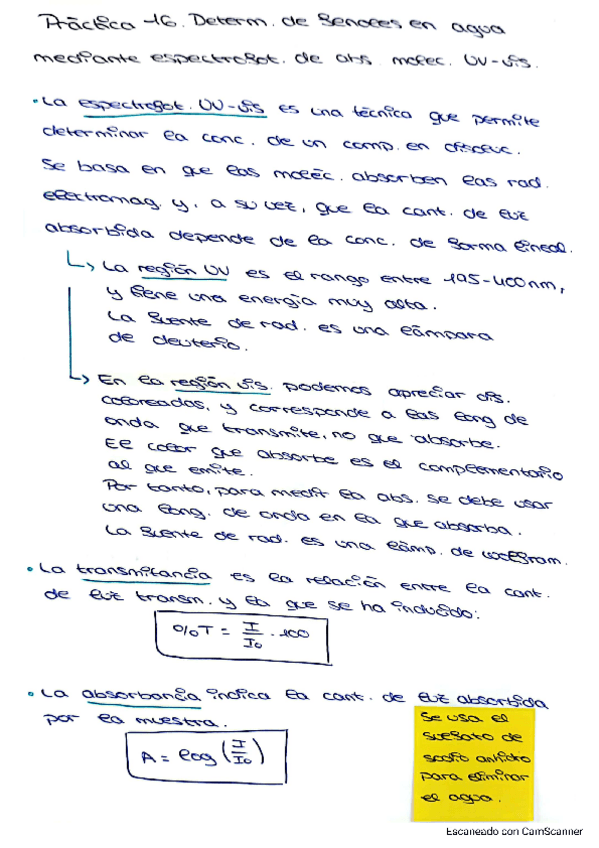 Práctica 16. Determ. de fenoles en agua
mediante espectrofot. de abs. molec. UV-vis.
• La espectrofot. UV-vis es una técnica que permite
determinar la conc. de un comp. en disoluc.
Se basa en que las moléc. absorben las rad.
electromag. y, a su vez, que la cant. de luz
absorbida depende de la conc. de forma lineal.
↳ La región UV es el rango entre 195-400nm,
y tiene una energía muy alta.
La fuente de rad. es una lámpara
de deuterio.
↳ En la región vis. podemos apreciar dis.
coloreadas, y corresponde a las long de
onda que transmite, no que absorbe.
El color que absorbe es el complementario
al que emite.
Por tanto, para medir la abs. se debe usar
una long. de onda en la que absorba.
La fuente de rad. es una lámp. de wolfram.
• La transmitancia es la relación entre la cant.
de luz transm. y la que se ha incidido:
%T = I/I₀ · 100
• La absorbancia indica la cant. de luz absorbida
por la muestra.
A = log (I/I₀)
Se usa el
sulfato de
sodio anhidro
para eliminar
el agua.
Escaneado con CamScanner